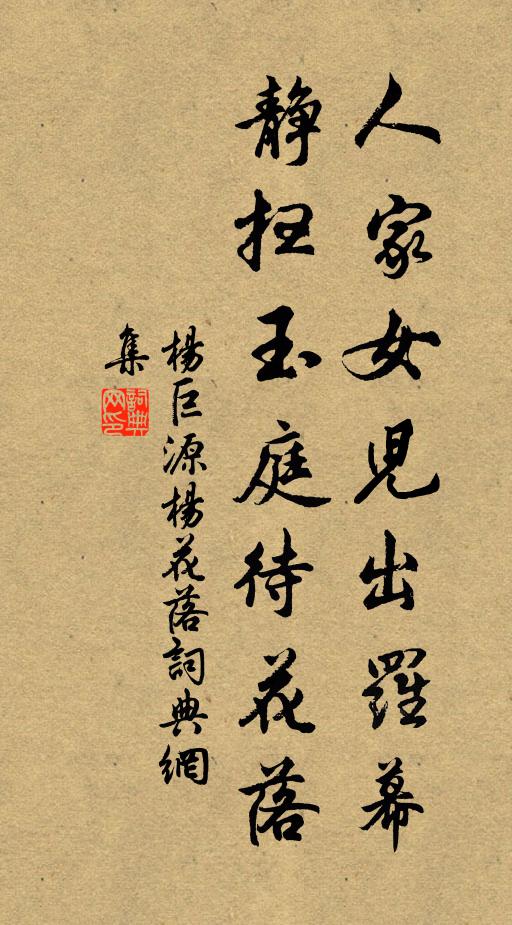 人家女兒出羅幕
静扫玉庭待花落
楊巨源楊花落詞典網
集
詞典
网印